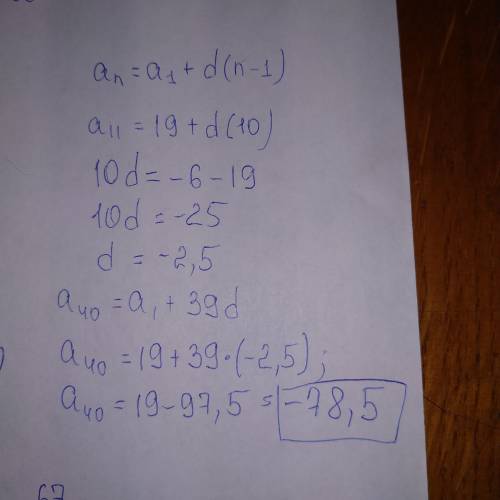 aₙ = a₁ + d(n-1)
a₁₁ = 19 + d(10)
10d = -6 - 19
10d = -25
d = -2,5
a₄₀ = a₁ + 39d
a₄₀ = 19 + 39·(-2,5);
a₄₀ = 19 - 97,5 = -78,5